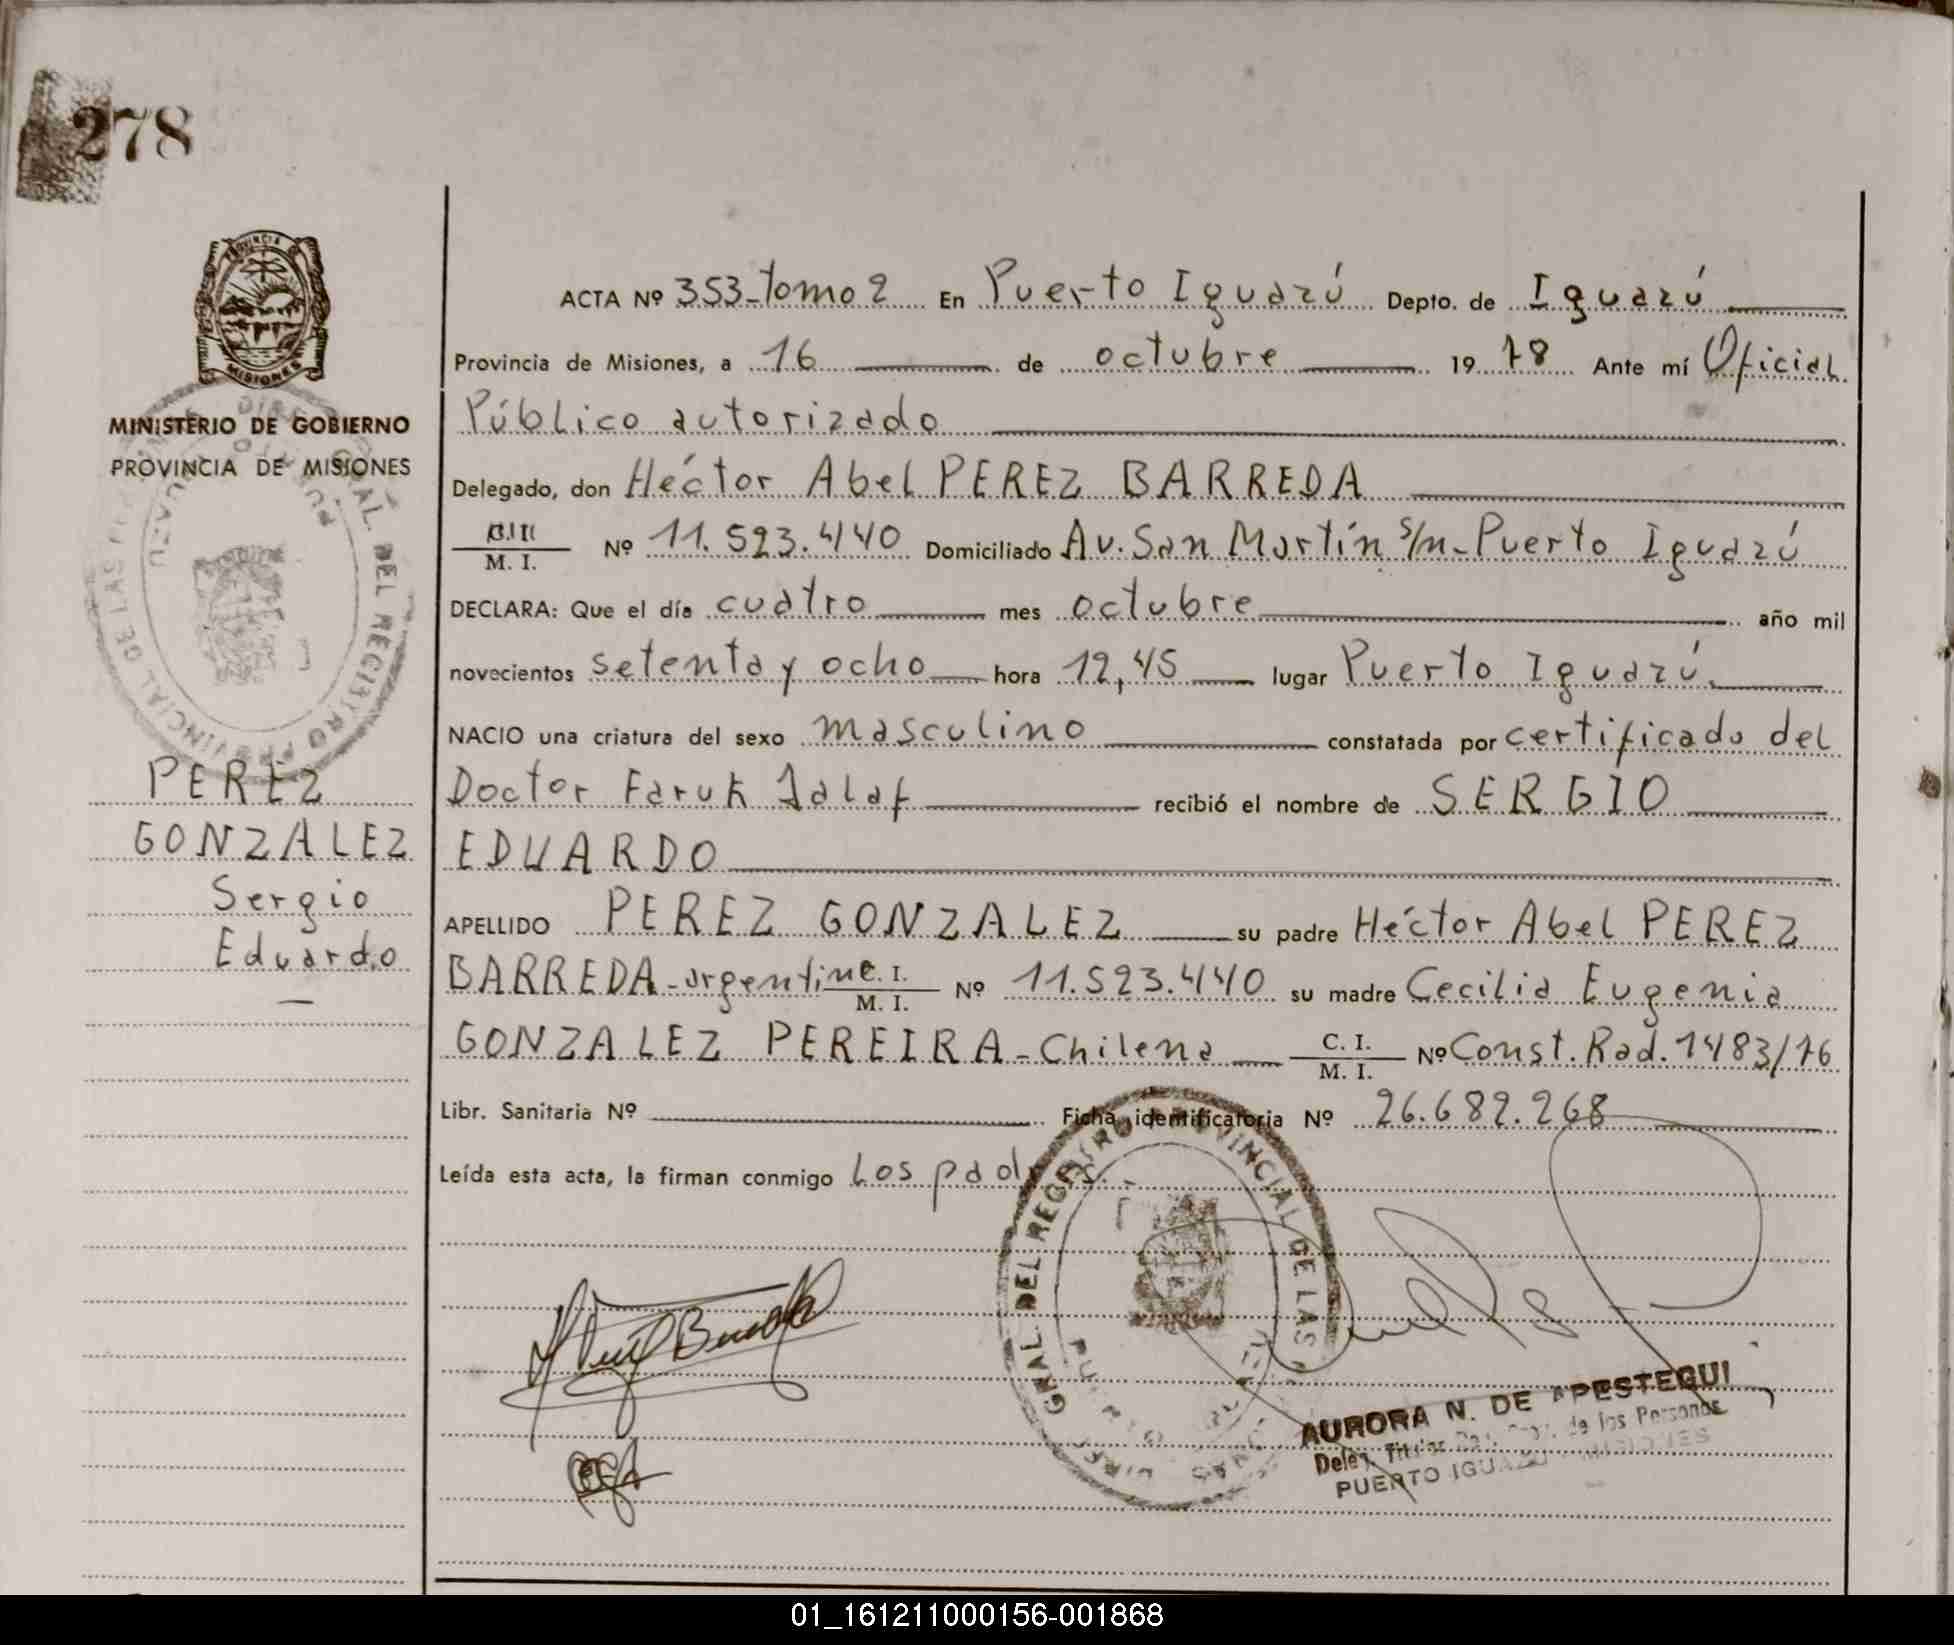 278
PROVINCIA DE
MISIONES
MINISTERIO DE GOBIERNO
PROVINCIA DE MISIONES
GRAL. DEL REGISTRO PROVINCIAL DE LAS
PEREZ
GONZALEZ
Sergio
Eduardo
ACTA Nº 353-Tomo 2 En Puerto Iguazú Depto. de Iguazú
Provincia de Misiones, a 16 de octubre 19 78 Ante mí Oficial
Público autorizado
Delegado, don Héctor Abel PEREZ BARREDA
M. I. Nº 11.523.440 Domiciliado Av. San Martín s/n - Puerto Iguazú
DECLARA: Que el día cuatro mes octubre año mil
novecientos setenta y ocho hora 12,45 lugar Puerto Iguazú
NACIO una criatura del sexo masculino constatada por certificado del
Doctor Faruk Jalaf recibió el nombre de SERGIO
EDUARDO
APELLIDO PEREZ GONZALEZ su padre Héctor Abel PEREZ
BARREDA - argentino C. I. M. I. Nº 11.523.440 su madre Cecilia Eugenia
GONZALEZ PEREIRA - Chilena C. I. M. I. Nº Const. Rad. 1483/76
Libr. Sanitaria Nº Ficha identificatoria Nº 26.682.268
Leída esta acta, la firman conmigo los padres.
GRAL. DEL REGISTRO PROVINCIAL DE LAS
AURORA N. DE APESTEGUI
Deleg. Titular de las Personas
PUERTO IGUAZU - MISIONES
01_161211000156-001868